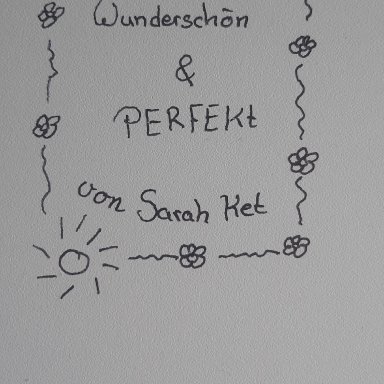 Wunderschön
&
PERFEKt
von Sarah Ket